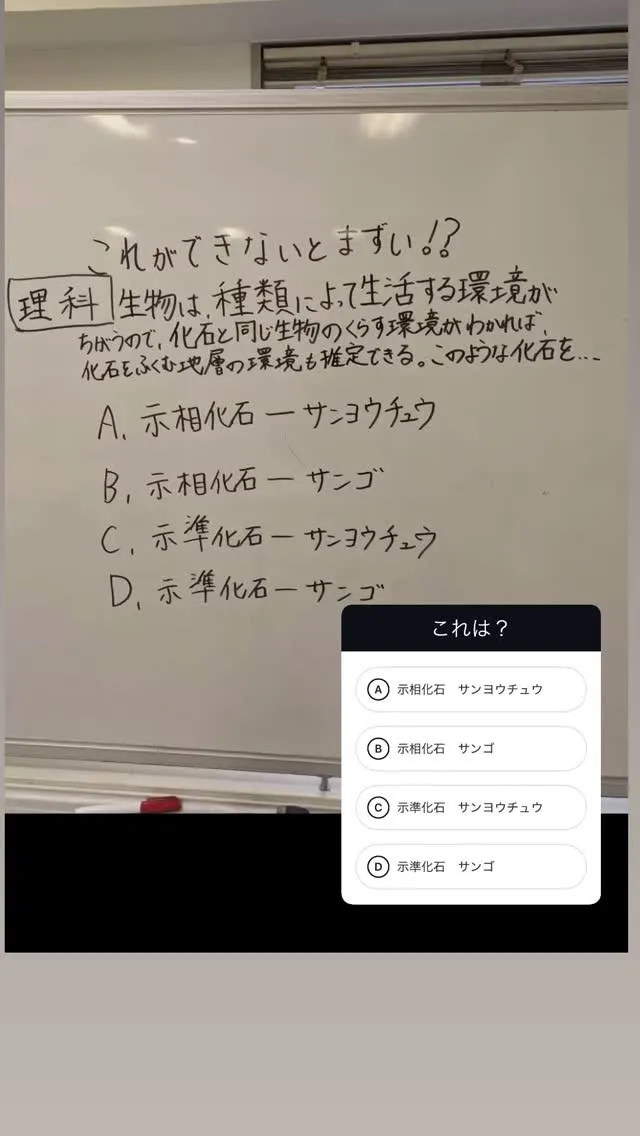 これができないとまずい!?
理科
生物は、種類によって生活する環境が
ちがうので、化石と同じ生物のくらす環境がわかれば、
化石をふくむ地層の環境も推定できる。このような化石を...
A. 示相化石ーサンヨウチュウ
B. 示相化石ーサンゴ
C. 示準化石ーサンヨウチュウ
D. 示準化石ーサンゴ
これは？
A 示相化石 サンヨウチュウ
B 示相化石 サンゴ
C 示準化石 サンヨウチュウ
D 示準化石 サンゴ